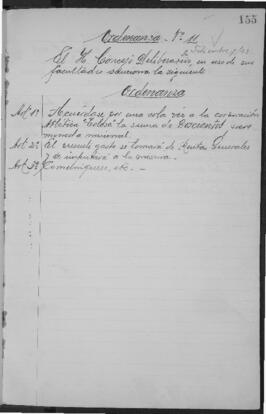 155
Ordenanza Nº 11.
El H. Concejo Deliberante, en uso de sus
facultades sanciona la siguiente
Ordenanza
Art. 1º Acuérdase por una sola vez a la corporación
Atlética "Tolosa" la suma de Doscientos pesos
moneda nacional.
Art. 2º El presente gasto se tomará de Rentas Generales
y se imputará a la misma.
Art. 3º Comuníquese, etc. —